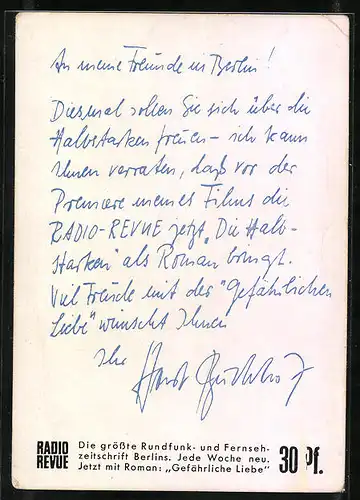 An meine Freunde in Berlin!
Diesmal sollen Sie sich über die
Halbstarken freuen – ich kann
Ihnen verraten, daß vor der
Premiere meines Films die
RADIO-REVUE jetzt „Die Halb-
starken" als Roman bringt.
Viel Freude mit der "Gefährlichen
Liebe" wünscht Ihnen
Ihr Horst Buchholz
RADIO REVUE
Die größte Rundfunk- und Fernseh-
zeitschrift Berlins. Jede Woche neu.
Jetzt mit Roman: „Gefährliche Liebe"
30 Pf.